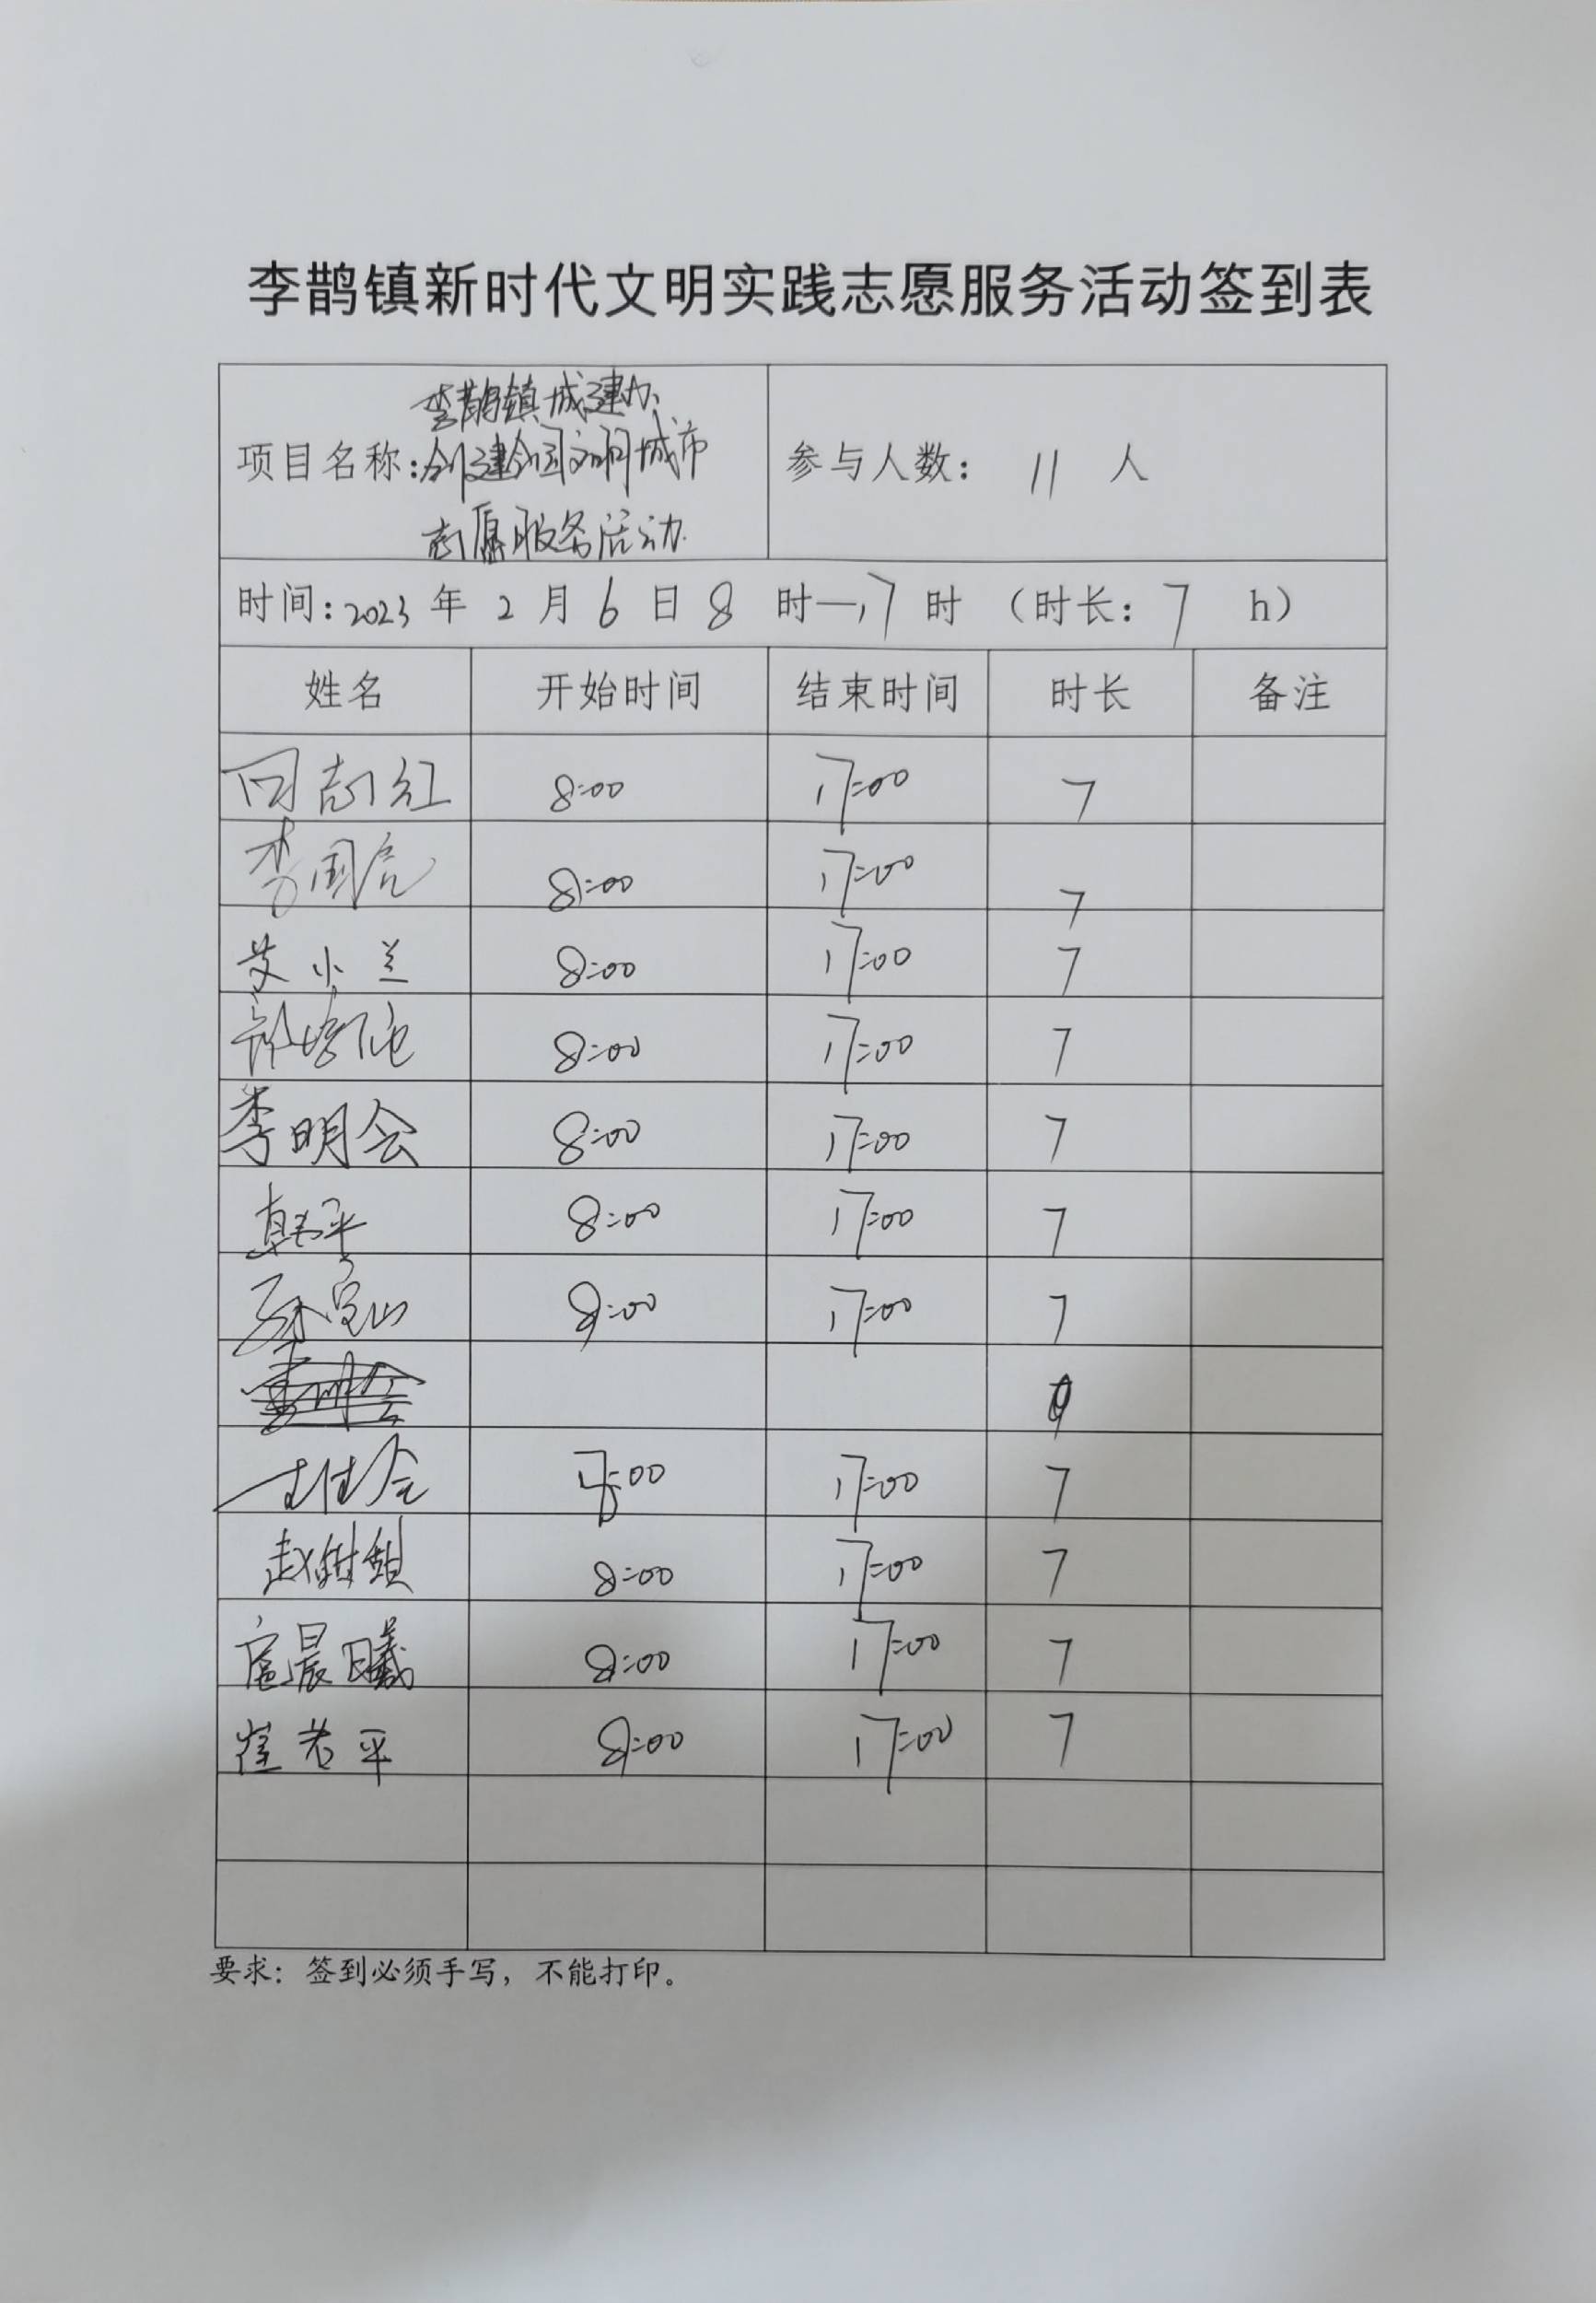 李鹊镇新时代文明实践志愿服务活动签到表
李鹊镇城建办
项目名称:创建全国文明城市
志愿服务活动
参与人数: 11 人
时间:2023 年 2 月 6 日 8 时—17 时 (时长: 7 h)
姓名 开始时间 结束时间 时长 备注
回志红 8:00 17:00 7
李国亮 8:00 17:00 7
艾小兰 8:00 17:00 7
8:00 17:00 7
李明会 8:00 17:00 7
韩平 8:00 17:00 7
孙宝山 8:00 17:00 7
:00 17:00 7
赵树镇 8:00 17:00 7
扈晨曦 8:00 17:00 7
崔若平 8:00 17:00 7
要求: 签到必须手写, 不能打印。